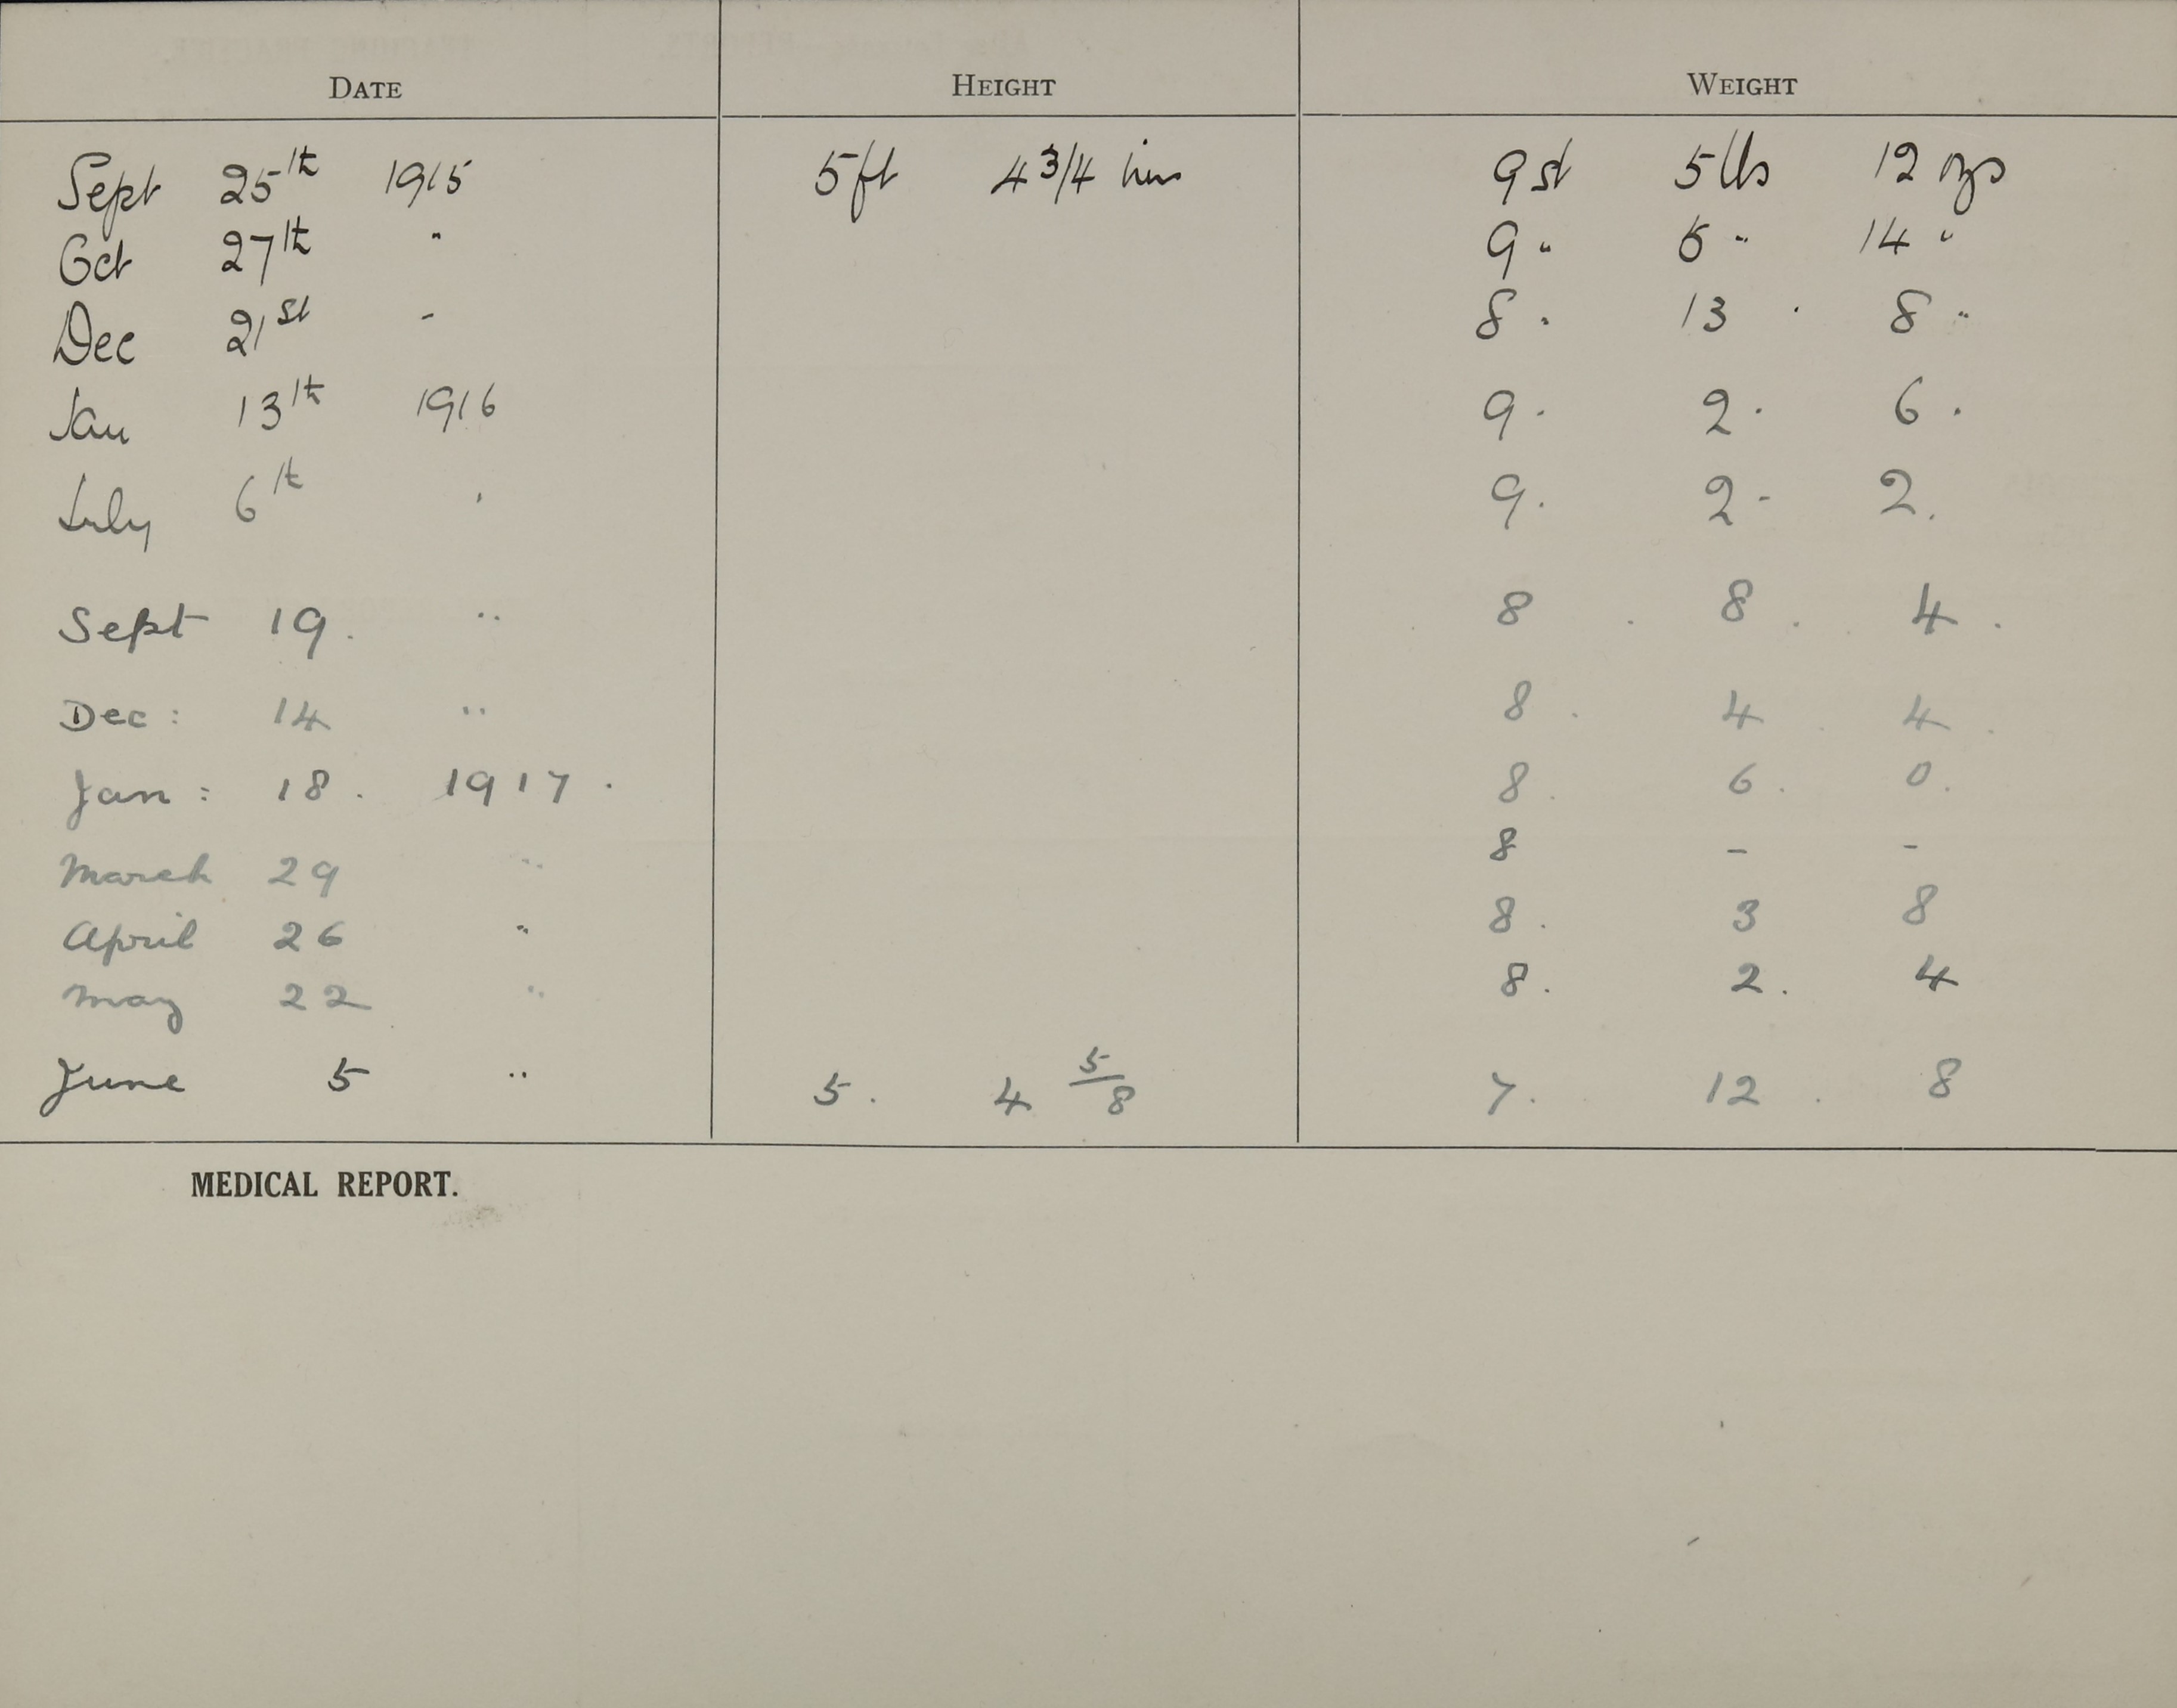 DATE HEIGHT WEIGHT
Sept 25th 1915 5ft 4 3/4 ins 9 st 5 lbs 12 ozs
Oct 27th " 9 " 5 " 14 "
Dec 21st " 8 . 13 . 8 "
Jan 13th 1916 9 . 2 . 6 .
July 6th " 9 . 2 - 2 .
Sept 19. " 8 . 8 . 4 .
Dec: 14 " 8 . 4 . 4 .
Jan: 18. 1917. 8 . 6 . 0 .
March 29 " 8 - -
April 26 " 8 . 3 8
May 22 " 8 . 2 . 4
June 5 " 5 . 4 5/8 7 . 12 . 8
MEDICAL REPORT.